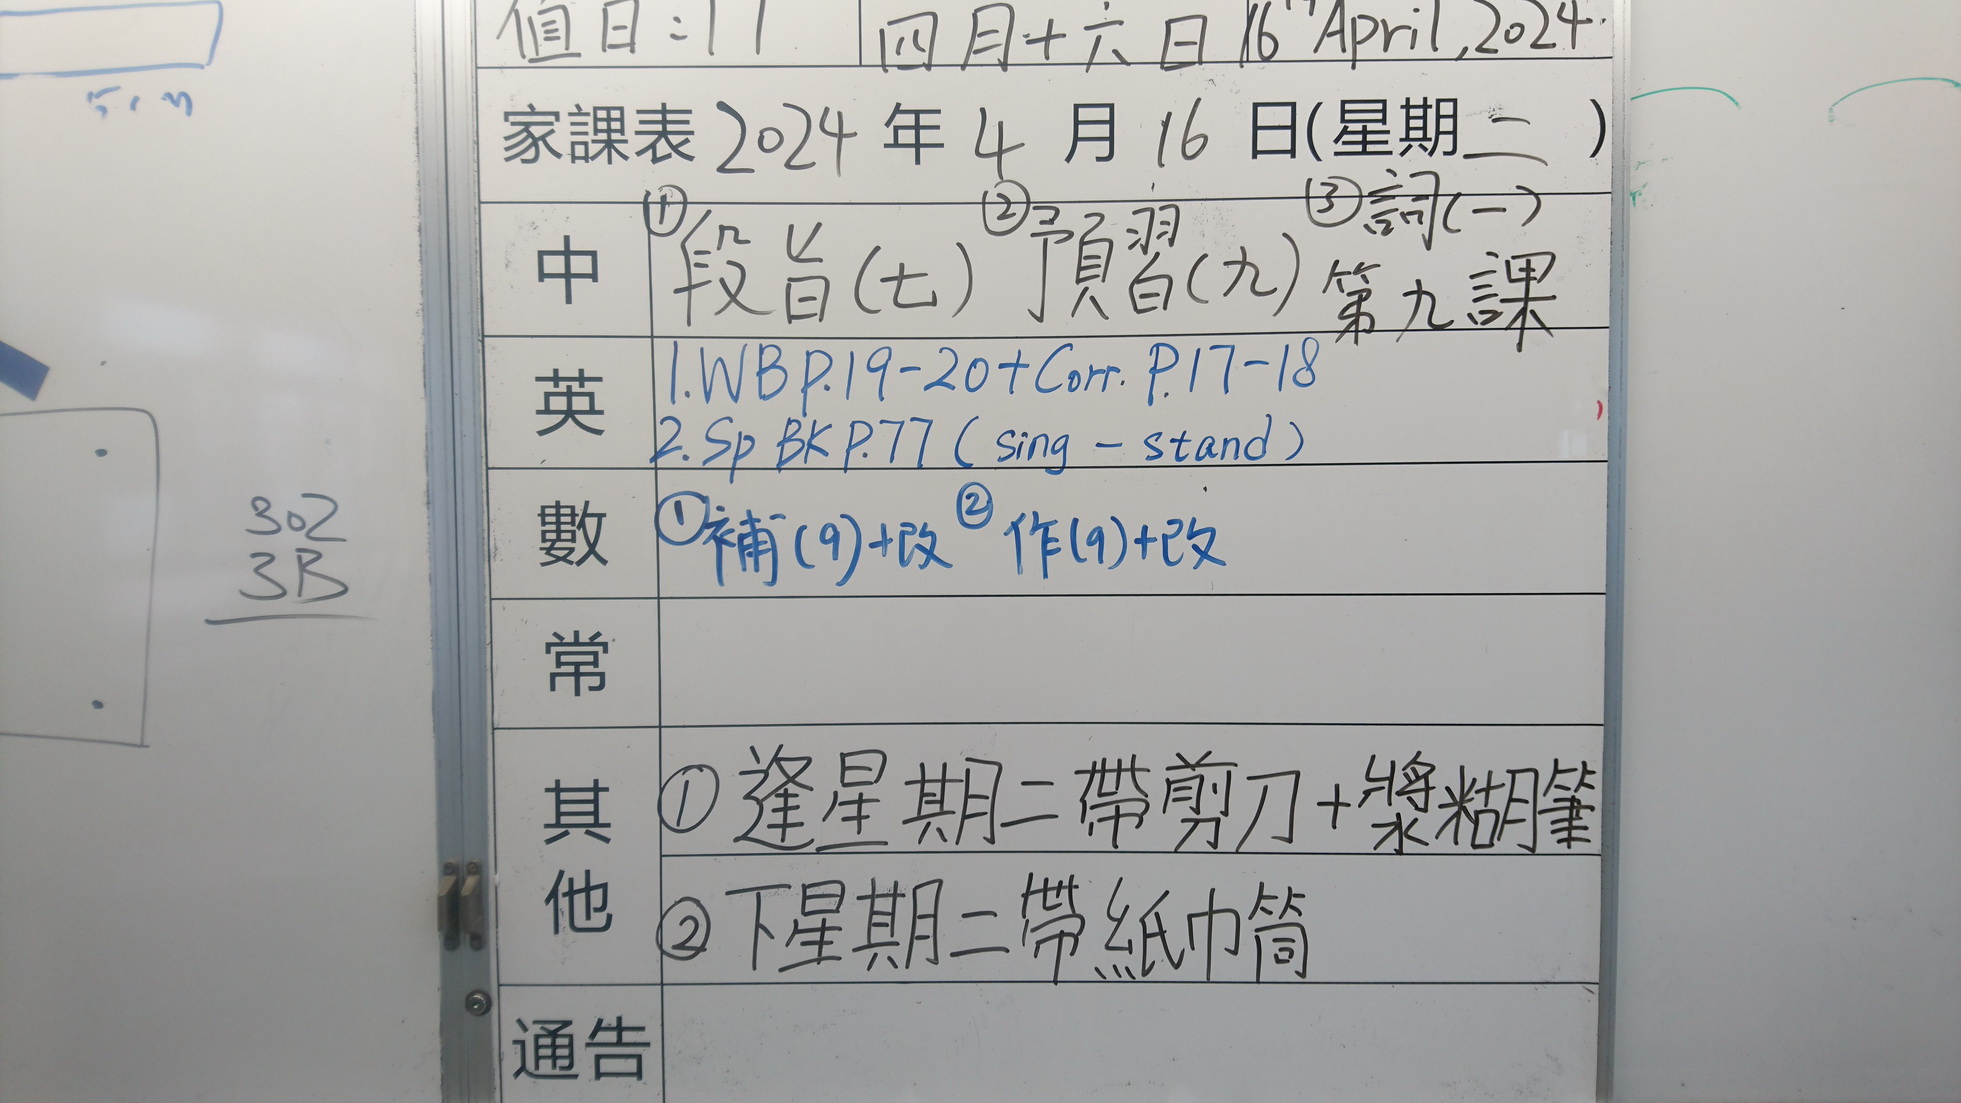 值日:11 四月十六日 16th April, 2024.
家課表 2024 年 4 月 16 日(星期二)
中 ①段旨(七) ②預習(九) ③詞(一)
第九課
英 1.WB P.19-20+Corr. P.17-18
2.Sp BK P.77 (sing - stand)
數 ①補(9)+改 ②作(9)+改
常
其他 ①逢星期二帶剪刀+漿糊筆
②下星期二帶紙巾筒
通告
302
3B